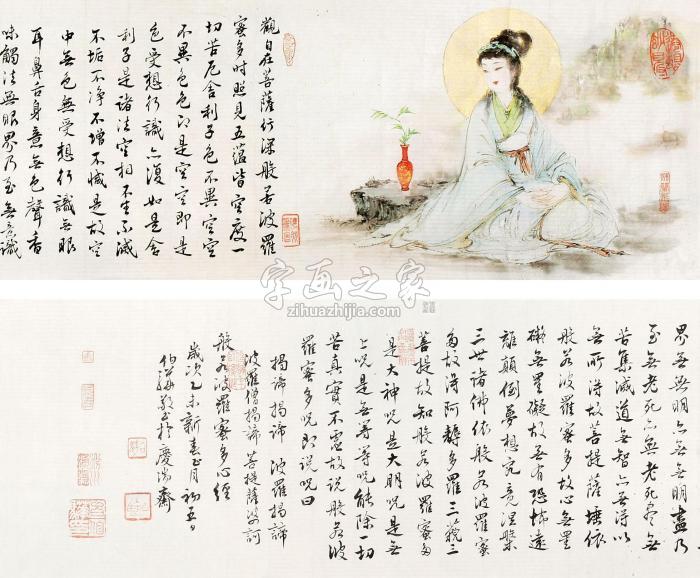 觀自在菩薩行深般若波羅
蜜多時照見五蘊皆空度一
切苦厄舍利子色不異空空
不異色色即是空空即是
色受想行識亦復如是舍
利子是諸法空相不生不滅
不垢不净不增不減是故空
中無色無受想行識無眼
耳鼻舌身意無色聲香
味觸法無眼界乃至無意識
字画之家
zihuazhijia.com
界無無明亦無無明盡乃
至無老死亦無老死盡無
苦集滅道無智亦無得以
無所得故菩提薩埵依
般若波羅蜜多故心無罣
礙無罣礙故無有恐怖遠
離顛倒夢想究竟涅槃
三世諸佛依般若波羅蜜
多故得阿耨多羅三藐三
菩提故知般若波羅蜜多
是大神咒是大明咒是無
上咒是無等等咒能除一切
苦真實不虛故說般若波
羅蜜多咒即說咒曰
揭諦揭諦 波羅揭諦
波羅僧揭諦 菩提薩婆訶
般若波羅蜜多心經
歲次乙未新春正月初五日